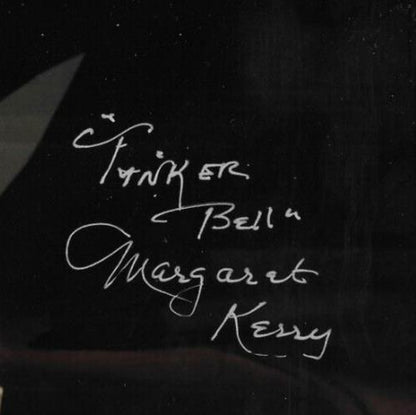 "Tinker
Bell"
Margaret
Kerry